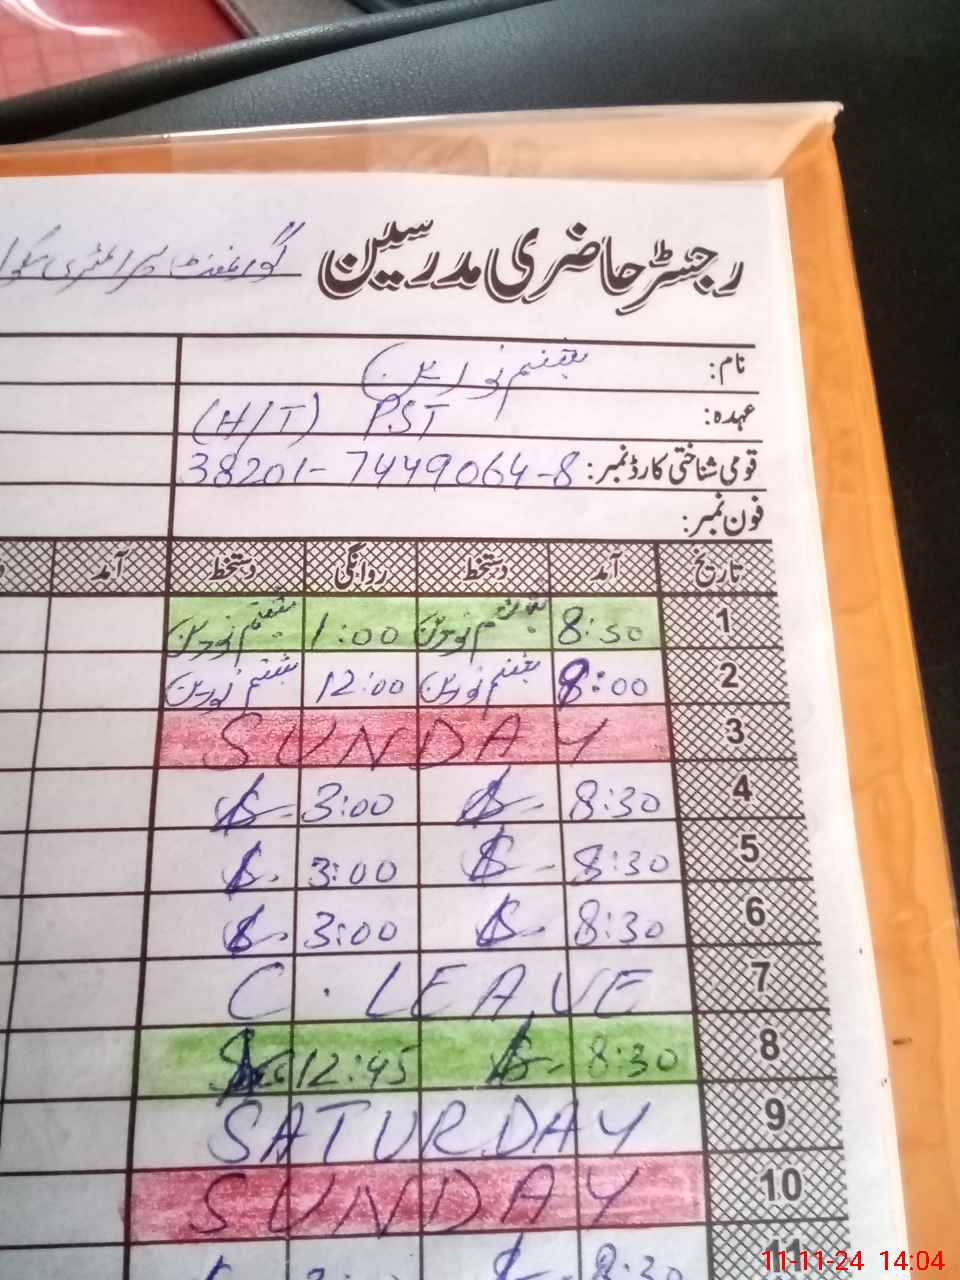 رجسٹر حاضری مدرسین گورنمنٹ پرائمری سکول
نام: شبنم نورین
عہدہ: PST (H/T)
قومی شناختی کارڈ نمبر: 38201-7449064-8
فون نمبر:
تاریخ آمد دستخط روانگی دستخط آمد
1 8:30 شبنم نورین 1:00 شبنم نورین
2 8:00 شبنم نورین 12:00 شبنم نورین
3 SUNDAY
4 8:30 3:00
5 8:30 3:00
6 8:30 3:00
7 C. LEAVE
8 8:30 12:45
9 SATURDAY
10 SUNDAY
11 8:30
11-11-24 14:04